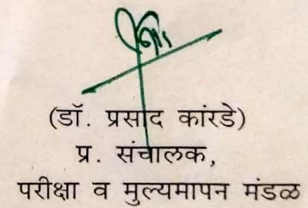 (डॉ. प्रसाद कारंडे)
प्र. संचालक,
परीक्षा व मुल्यमापन मंडळ